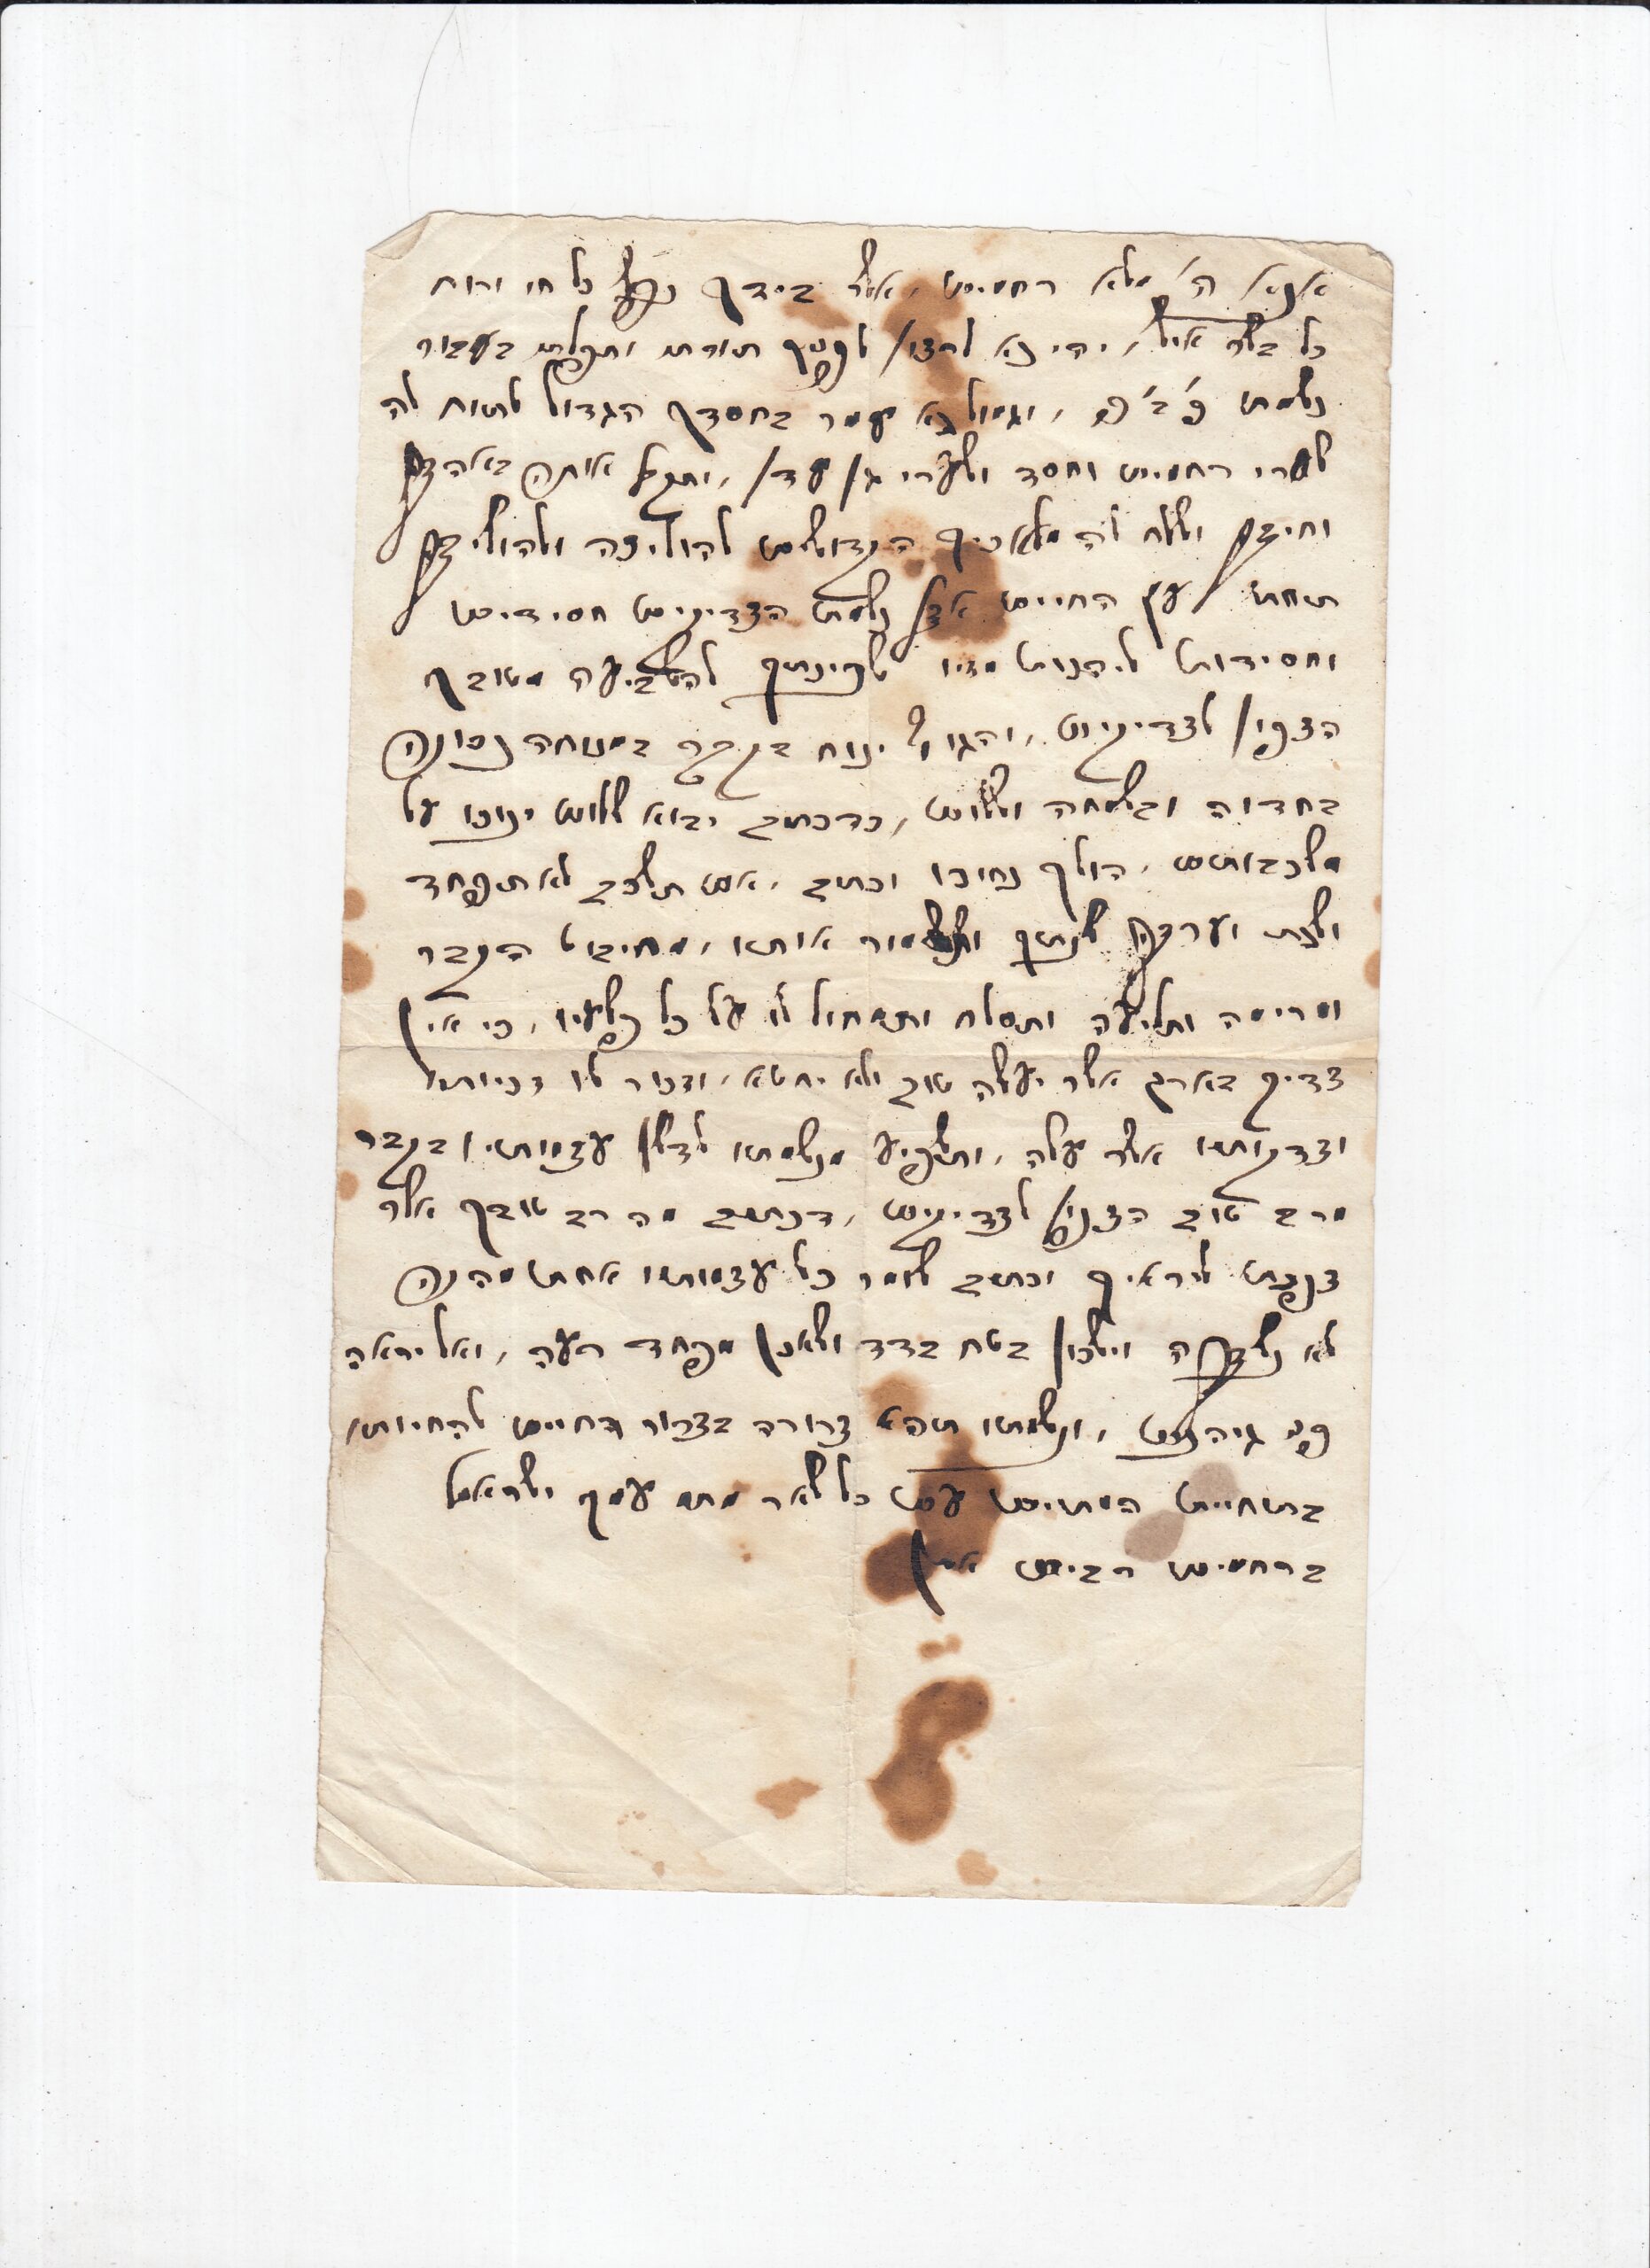 אנא ה' מלא רחמים, אשר בידך נפש כל חי ורוח
כל בשר איש, יהי נא לרצון לפניך תורתי ותפלתי בעבור
נשמת פ' ב' פ', וגמול נא עמה בחסדך הגדול לפתוח לה
שערי רחמים וחסד ושערי גן עדן, ותקבל אותה באהבה
וחיבה ושלח לה מלאכיך הקדושים להוליכה ולהושיבה
תחת עץ החיים אצל נשמת הצדיקים חסידים
וחסידות ליהנות מזיו שכינתך להשביעה מטובך
הצפון לצדיקים, והגוף ינוח בקבר במנוחה נכונה
בחדוה ובשמחה ושלום, כדכתיב יבוא שלום ינוחו על
משכבותם, הולך נכוחו וכתיב, אם תשכב לא תפחד
ושכבת וערבה שנתך ותשמור אותו, מחיבוט הקבר
ומרימה ותליעה ותסלח ותמחול לו על כל פשעיו, כי אין
צדיק בארץ אשר יעשה טוב ולא יחטא, וזכור לו זכיותיו
וצדקותיו אשר עשה, ותשפיע מנשמתו לדשן עצמותיו בקבר
מרב טוב הצפון לצדיקים, דכתיב מה רב טובך אשר
צפנת ליראיך וכתיב שומר כל עצמותיו אחת מהנה
לא נשברה וישכון בטח בדד ושאנן מפחד רעה, ואל יראה
פני גיהנם, ונשמתו תהא צרורה בצרור החיים להחיותו
בתחיית המתים עם כל שאר מתי עמך ישראל
ברחמים רבים אמן